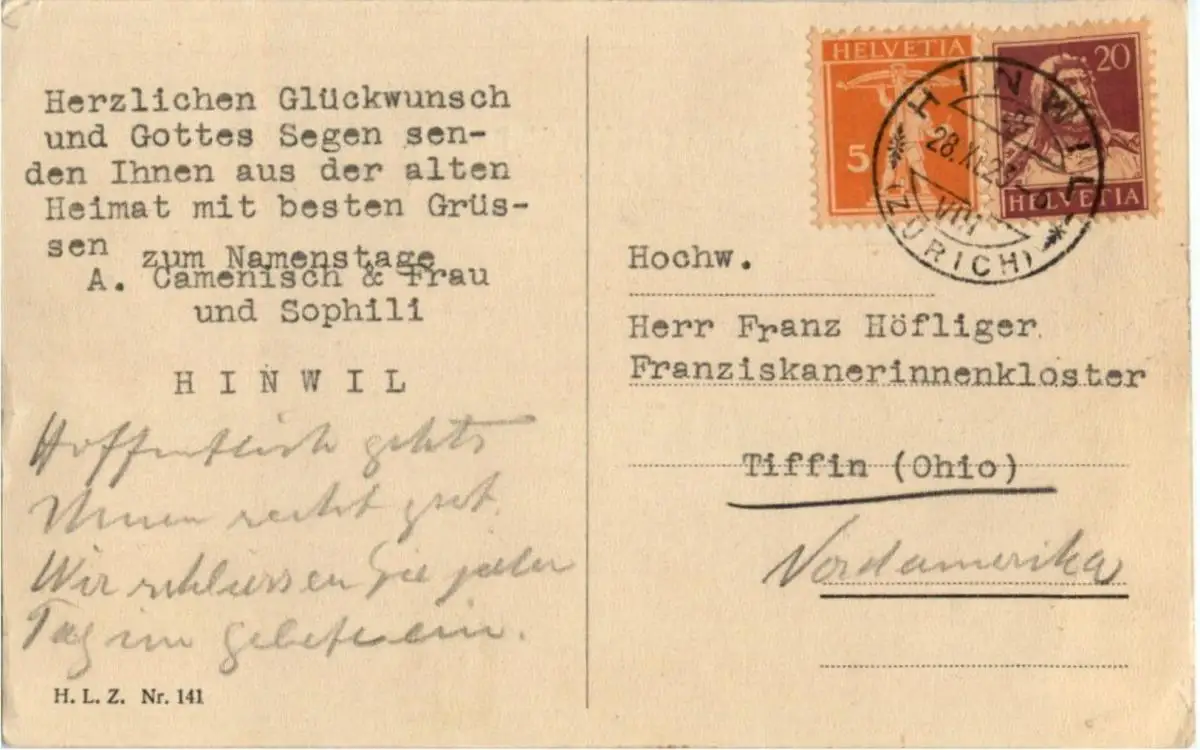 Herzlichen Glückwunsch
und Gottes Segen sen-
den Ihnen aus der alten
Heimat mit besten Grüs-
sen
zum Namenstage
A. Camenisch & Frau
und Sophili
HINWIL
Hoffentlich gehts
Ihnen recht gut.
Wir schliessen Sie jeden
Tag im Gebete ein.
H. L. Z. Nr. 141
HELVETIA
5
20
HELVETIA
HINWIL
28.XI.
VIII
(ZÜRICH)
Hochw.
Herr Franz Höfliger
Franziskanerinnenkloster
Tiffin (Ohio)
Nordamerika